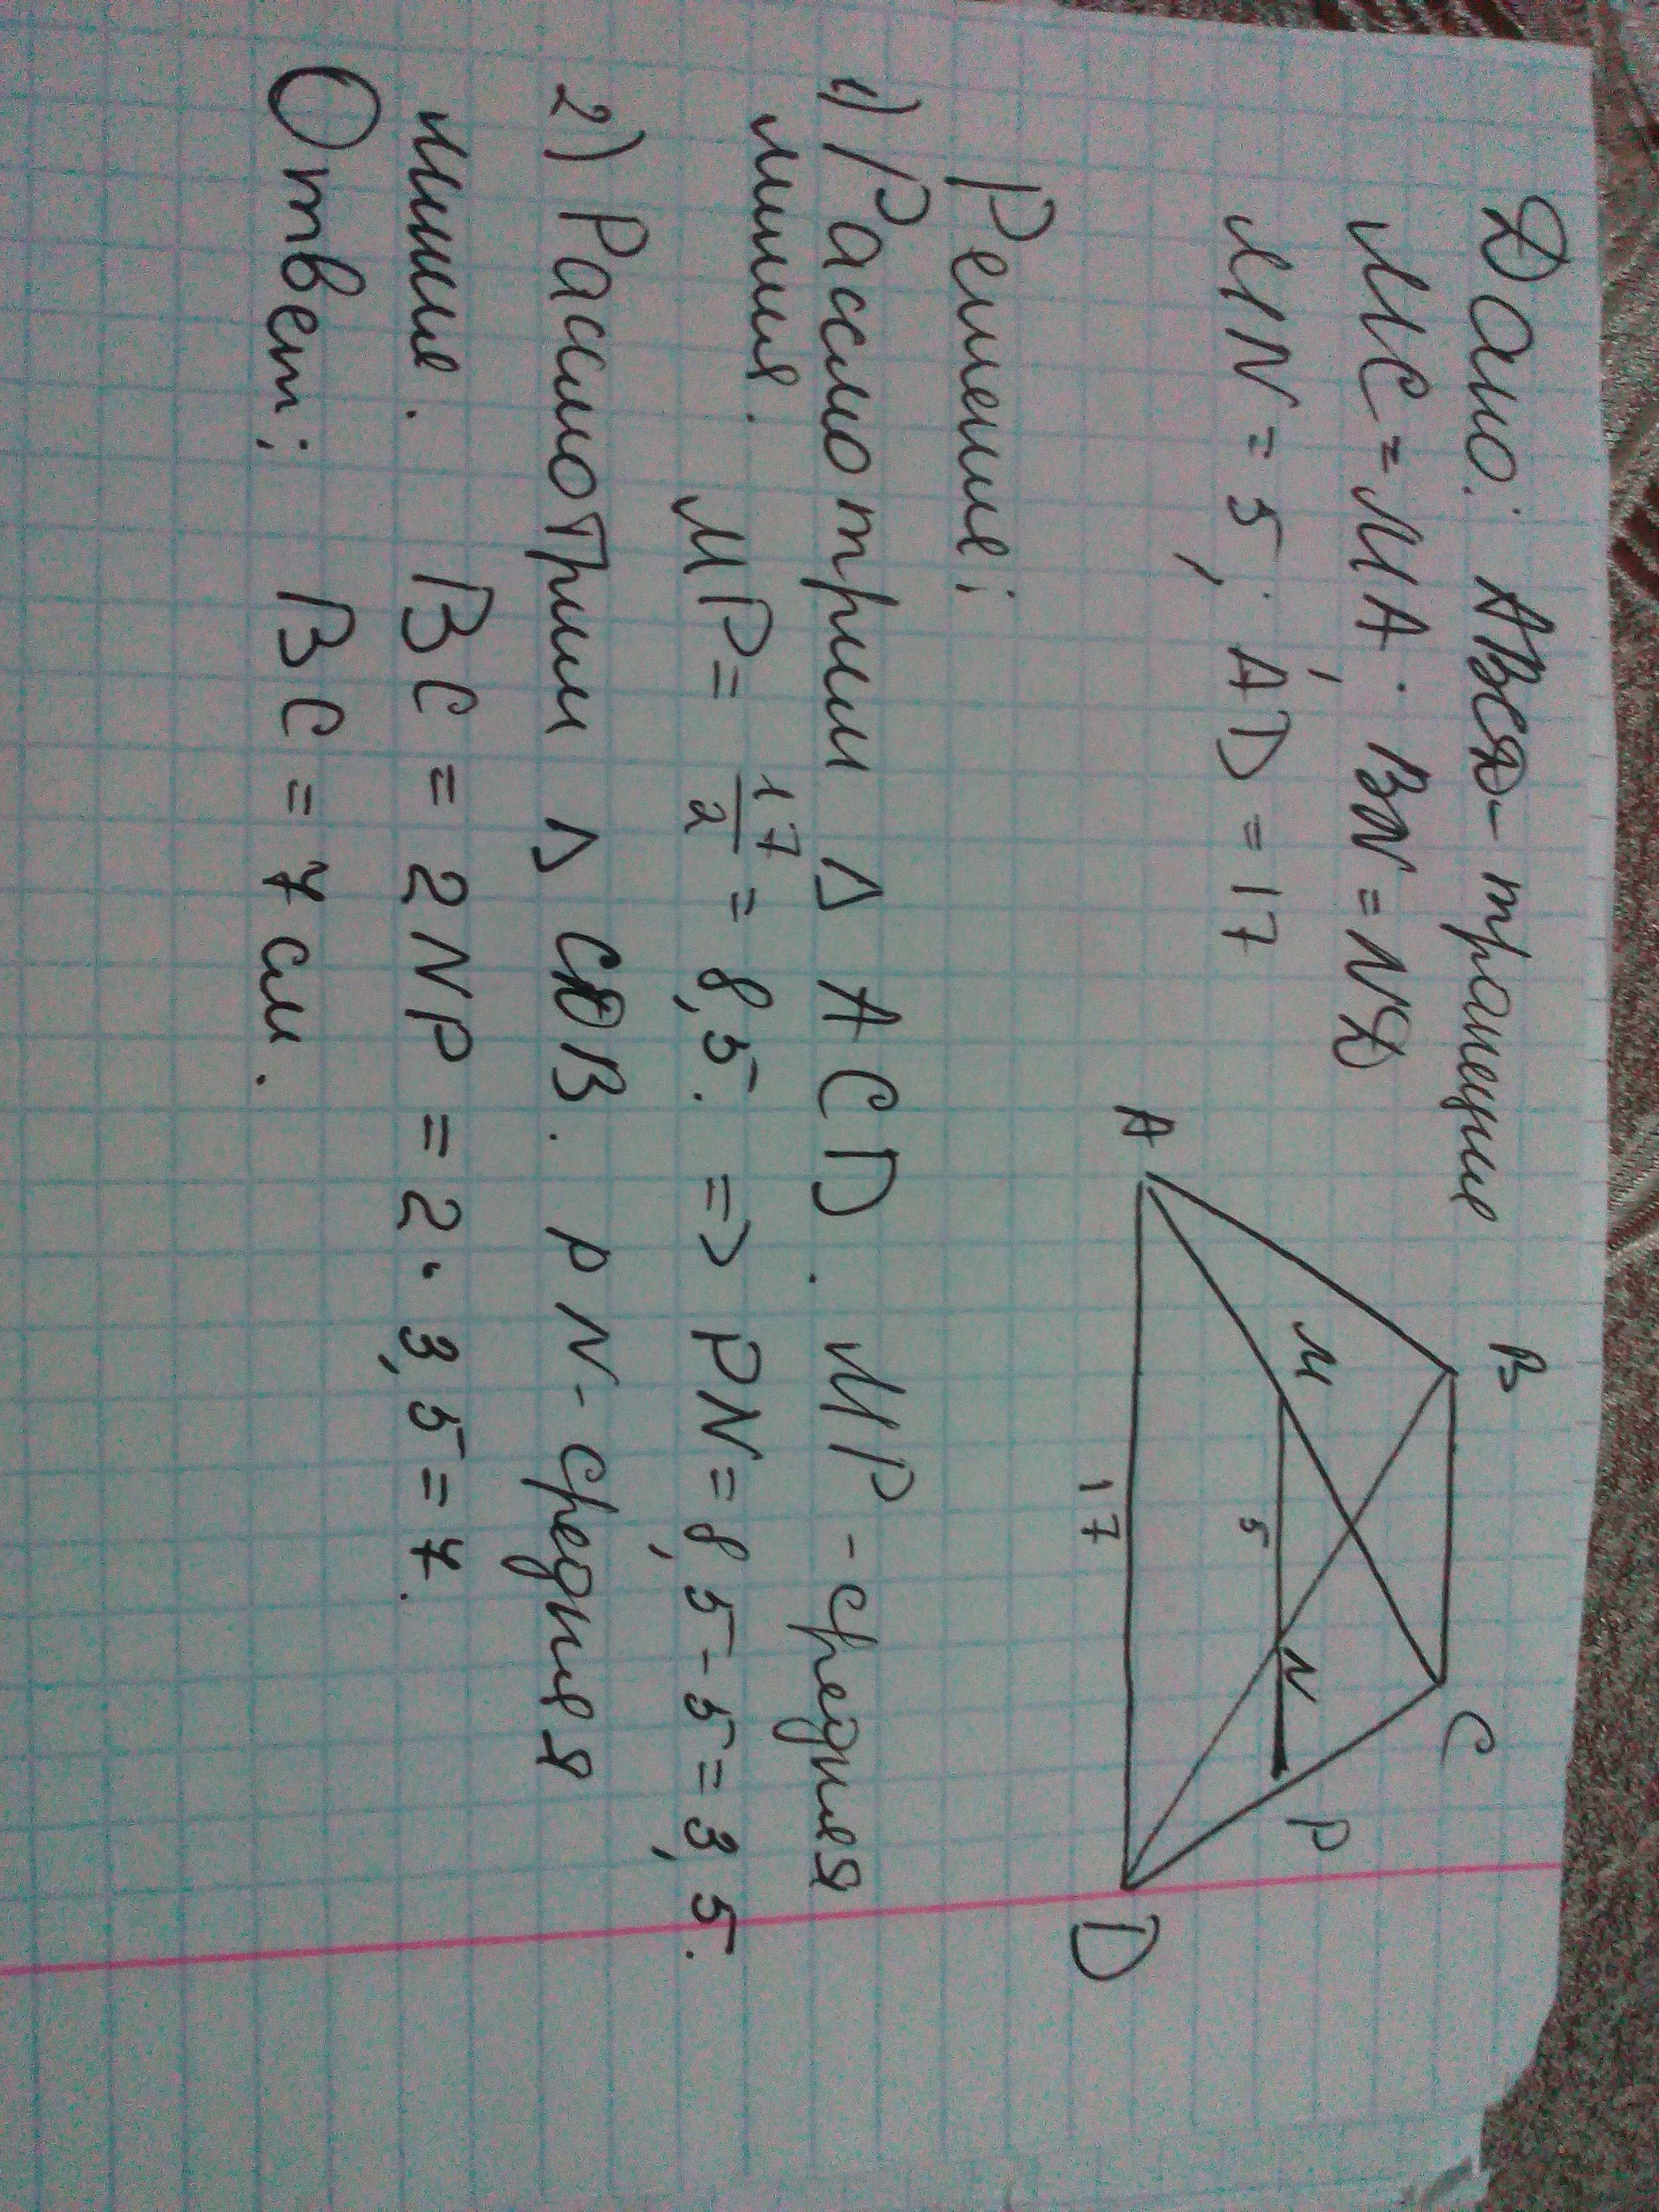 Дано: АВСД- трапеция
МС = МА; ВN = NД
MN = 5; AD = 17
A
B
C
D
M
N
P
5
17
Решение:
1) Рассмотрим Δ ACD. MP - средняя
линия. MP = 17/2 = 8,5. => PN = 8,5 - 5 = 3,5.
2) Рассмотрим Δ CDB. PN - средняя
линия. BC = 2NP = 2 · 3,5 = 7.
Ответ: BC = 7 см.